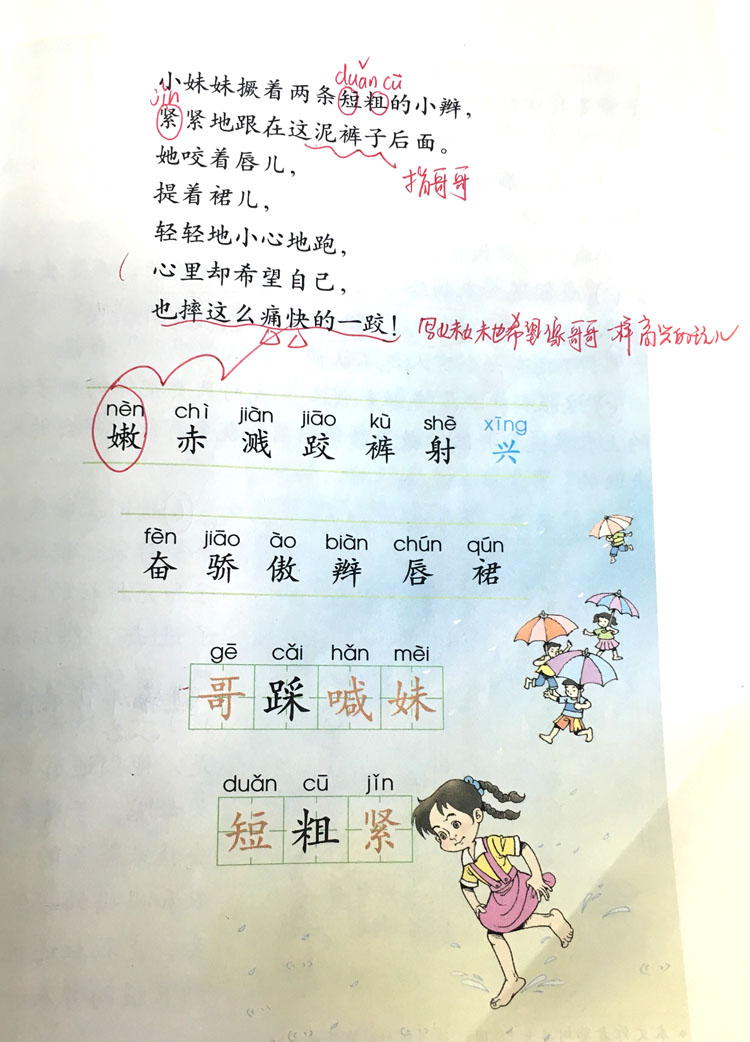 duǎn cū
小妹妹撅着两条短粗的小辫，
jǐn
紧紧地跟在这泥裤子后面。
她咬着唇儿，
指哥哥
提着裙儿，
轻轻地小心地跑，
心里却希望自己，
也摔这么痛快的一跤！
妹妹也希望像哥哥一样高兴的玩儿
nèn chì jiàn jiāo kù shè xīng
嫩 赤 溅 跤 裤 射 兴
fèn jiāo ào biàn chún qún
奋 骄 傲 辫 唇 裙
gē cǎi hǎn mèi
哥 踩 喊 妹
duǎn cū jǐn
短 粗 紧